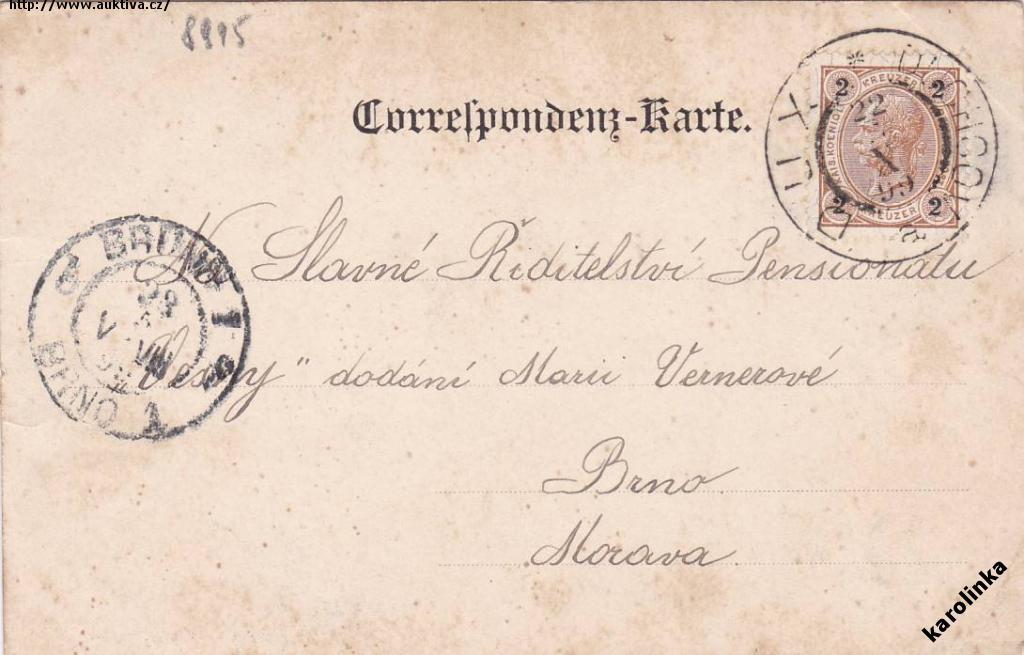 http://www.auktiva.cz/
8995
Correſpondenz-Karte.
2 KREUZER 2
2 KREUZER 2
22
X
99
BRÜNN 1
BRNO 1
Slavné Ředitelství Pensionátu
"Vesny" dodání Marii Vernerové
Brno
Morava
karolinka